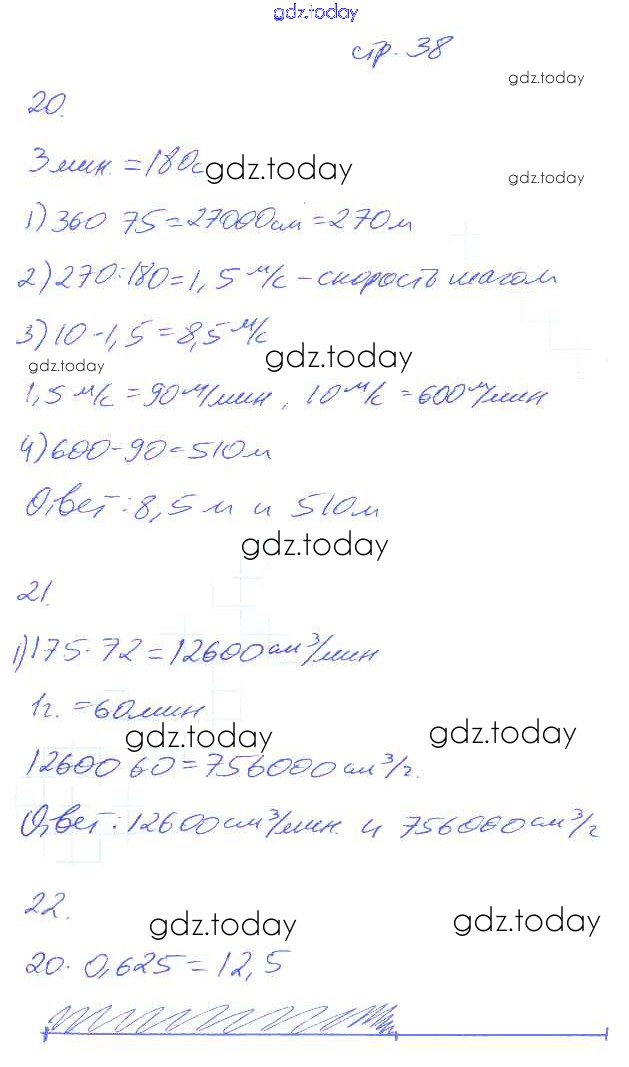 gdz.today
стр. 38
gdz.today
20.
3 мин. = 180с
gdz.today
gdz.today
1) 360 75 = 27000см = 270м
2) 270:180 = 1,5 м/с - скорость шагом
3) 10-1,5 = 8,5 м/с
gdz.today
gdz.today
1,5 м/с = 90 м/мин, 10 м/с = 600 м/мин
4) 600-90 = 510м
Ответ: 8,5 м и 510м
gdz.today
21.
1) 175·72 = 12600 см³/мин
1г. = 60мин
gdz.today
gdz.today
12600 60 = 756000 см³/г.
Ответ: 12600 см³/мин. и 756000 см³/г
22.
gdz.today
gdz.today
20· 0,625 = 12,5